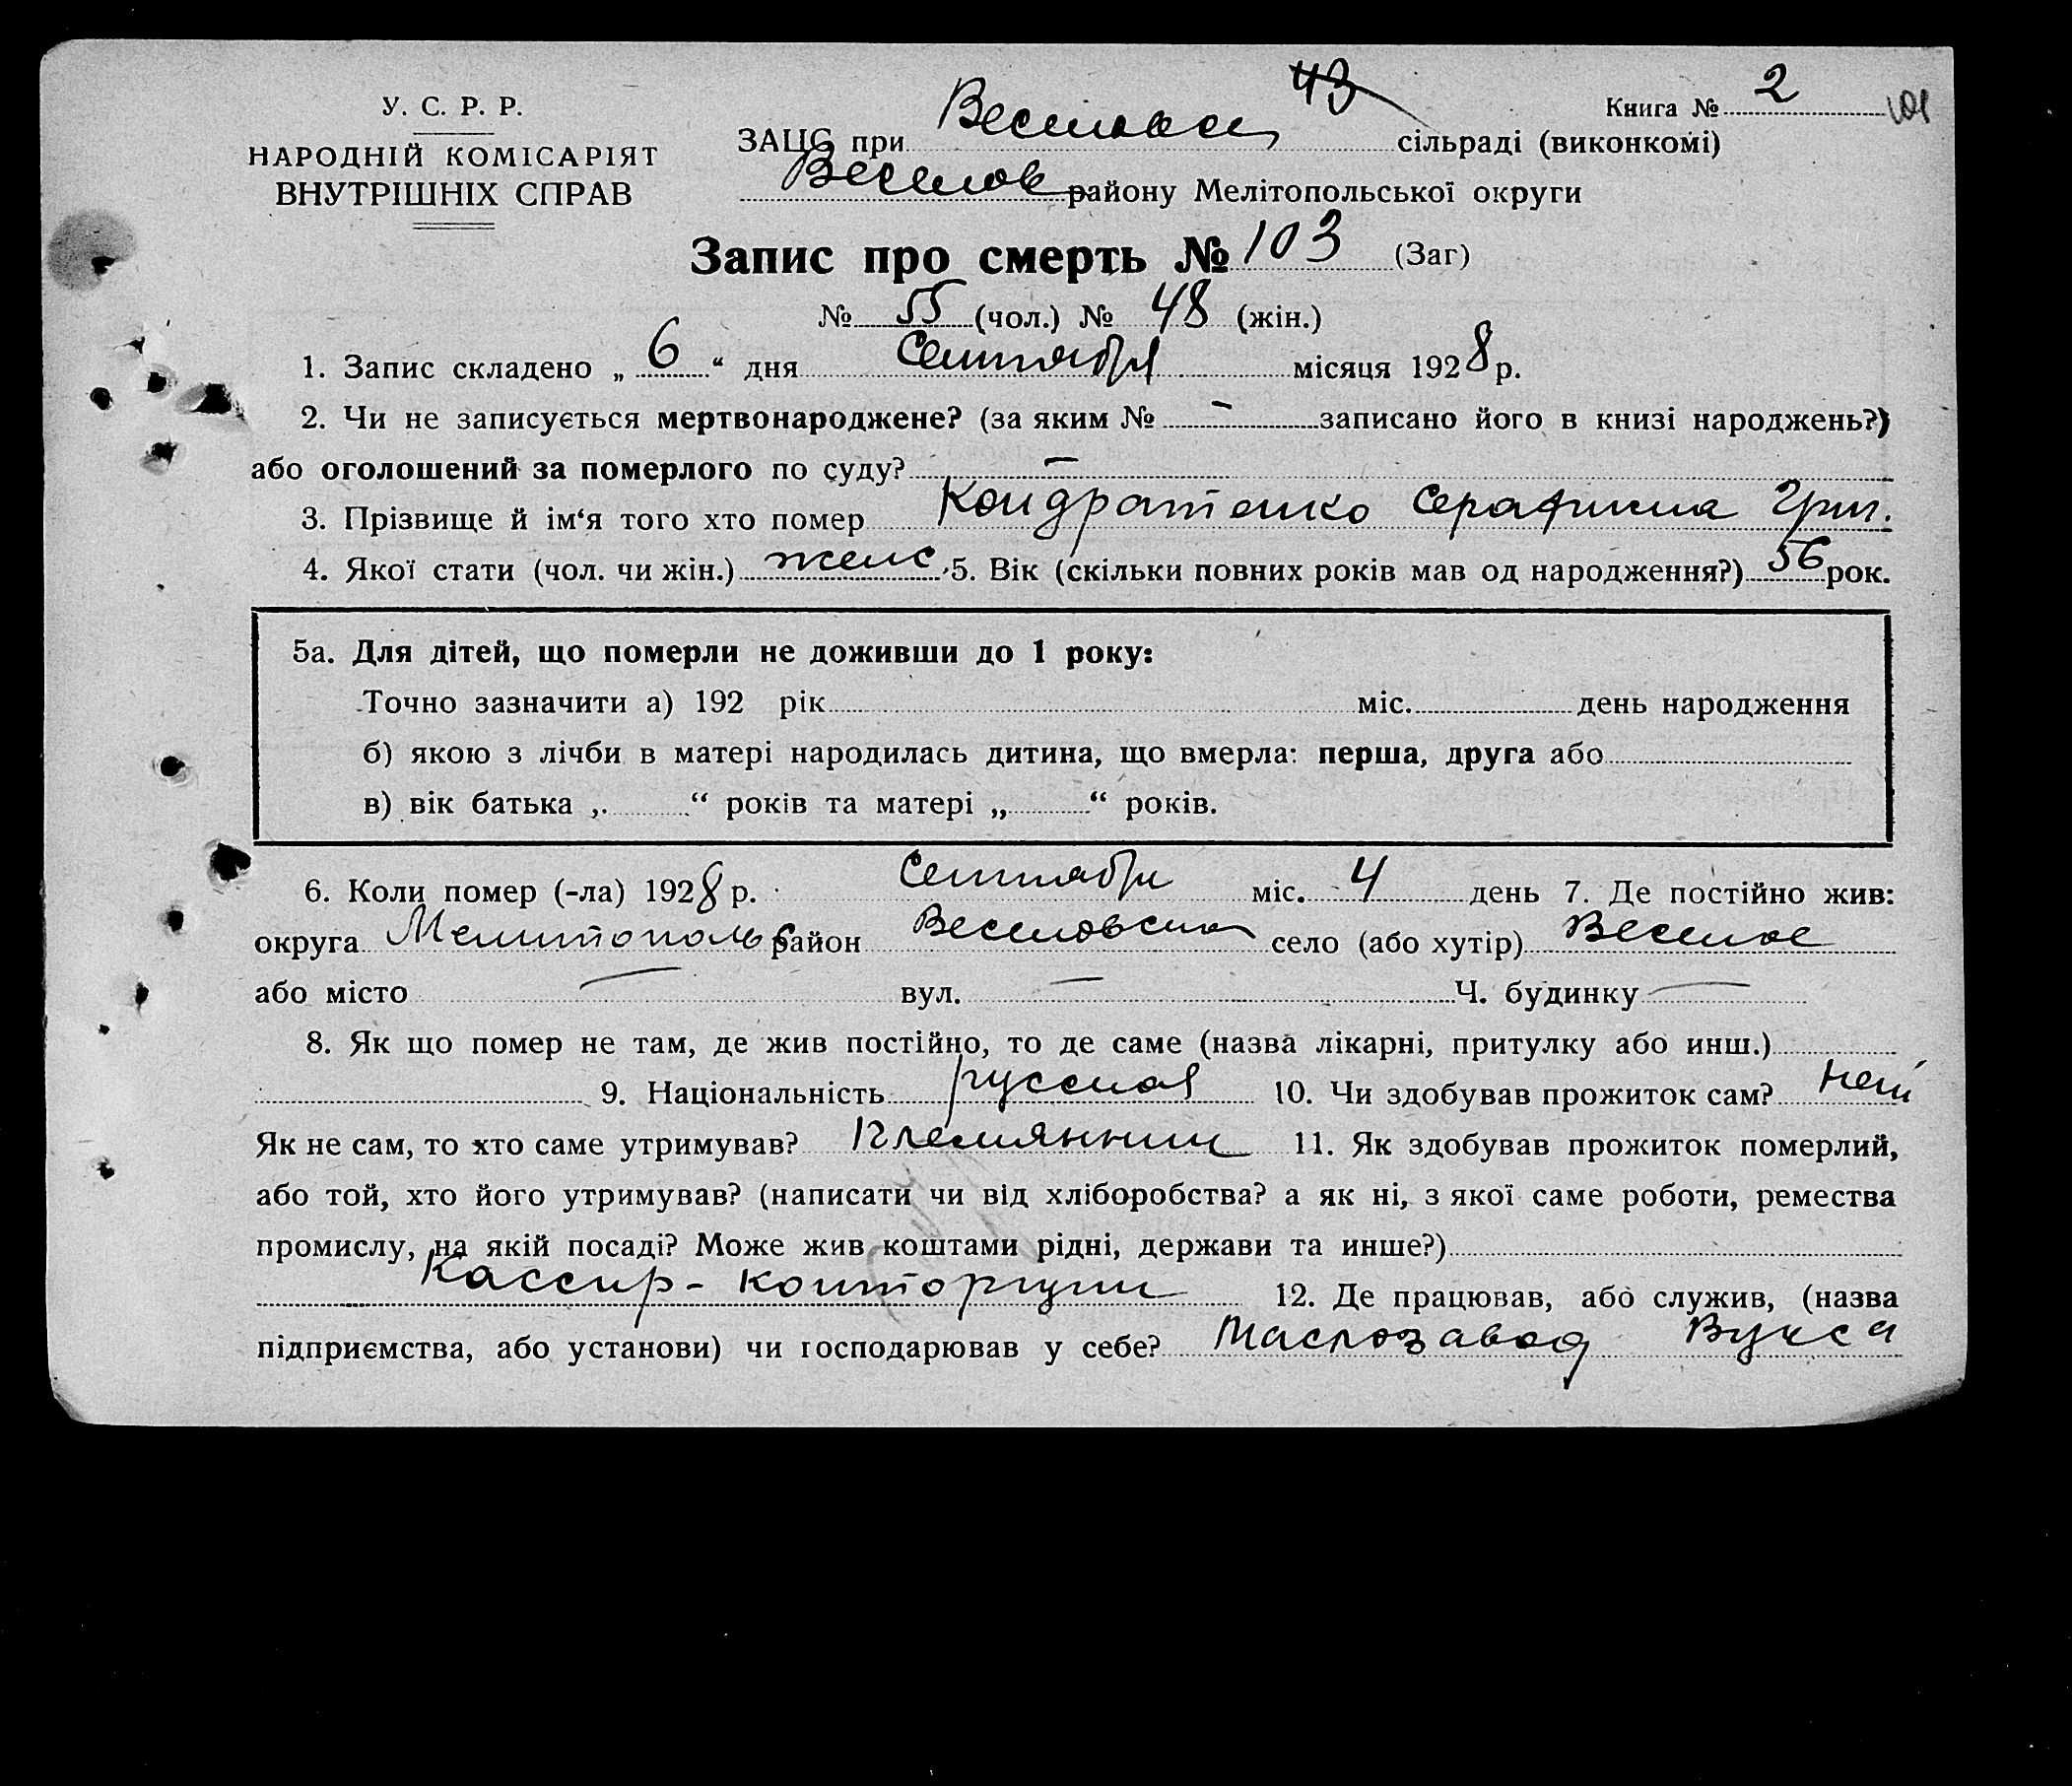 У. С. Р. Р.
НАРОДНІЙ КОМІСАРІЯТ
ВНУТРІШНІХ СПРАВ
43
Книга № 2 101
ЗАЦС при сільраді (виконкомі)
Веселов району Мелітопольської округи
Запис про смерть № 103 (Заг)
№ 55 (чол.) № 48 (жін.)
1. Запис складено „ 6 “ дня Сентября місяця 1928 р.
2. Чи не записується мертвонароджене? (за яким № – записано його в книзі народжень?)
або оголошений за померлого по суду? –
3. Прізвище й ім‘я того хто помер Кондратенко Серафима Григ.
4. Якої стати (чол. чи жін.) женс. 5. Вік (скільки повних років мав од народження?) 56 рок.
5а. Для дітей, що померли не доживши до 1 року:
Точно зазначити а) 192 рік міс. день народження
б) якою з лічби в матері народилась дитина, що вмерла: перша, друга або
в) вік батька „ “ років та матері „ “ років.
6. Коли помер (-ла) 1928 р. Сентября міс. 4 день 7. Де постійно жив:
округа Мелитополь район Веселовский село (або хутір) Веселое
або місто – вул. – Ч. будинку –
8. Як що помер не там, де жив постійно, то де саме (назва лікарні, притулку або инш.)
9. Національність русская 10. Чи здобував прожиток сам? нет
Як не сам, то хто саме утримував? Племянник 11. Як здобував прожиток померлий,
або той, хто його утримував? (написати чи від хліборобства? а як ні, з якої саме роботи, ремества
промислу, на якій посаді? Може жив коштами рідні, держави та инше?)
Кассир - конторщик 12. Де працював, або служив, (назва
підприємства, або установи) чи господарював у себе? Маслозавод Вукса